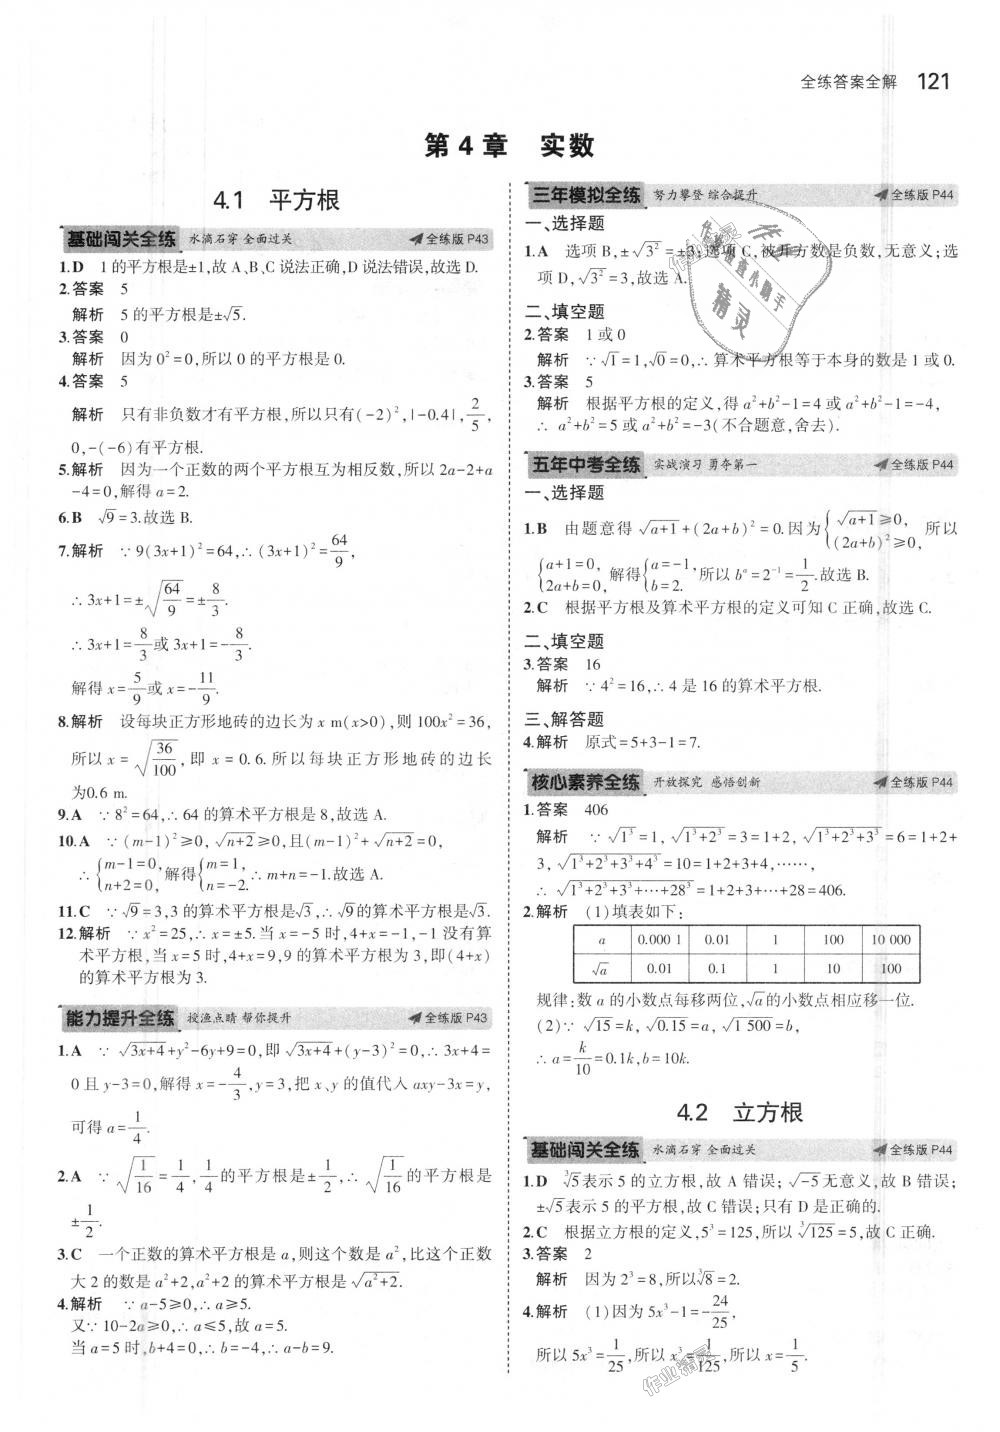 全练答案全解 121
第4章 实数
4.1 平方根
基础闯关全练 水滴石穿 全面过关 全练版P43
1.D 1的平方根是±1,故A、B、C说法正确,D说法错误,故选D.
2.答案 5
解析 5的平方根是±√5.
3.答案 0
解析 因为0²=0,所以0的平方根是0.
4.答案 5
解析 只有非负数才有平方根,所以只有(-2)²,|-0.4|,2/5,
0,-(-6)有平方根.
5.解析 因为一个正数的两个平方根互为相反数,所以2a-2+a
-4=0,解得a=2.
6.B √9=3.故选B.
7.解析 ∵9(3x+1)²=64,∴(3x+1)²=64/9,
∴3x+1=±√(64/9)=±8/3.
∴3x+1=8/3或3x+1=-8/3.
解得x=5/9或x=-11/9.
8.解析 设每块正方形地砖的边长为x m(x>0),则100x²=36,
所以x=√(36/100),即x=0.6.所以每块正方形地砖的边长
为0.6 m.
9.A ∵8²=64,∴64的算术平方根是8,故选A.
10.A ∵(m-1)²≥0,√(n+2)≥0,且(m-1)²+√(n+2)=0,
∴{m-1=0, n+2=0,解得{m=1, n=-2.∴m+n=-1.故选A.
11.C ∵√9=3,3的算术平方根是√3,∴√9的算术平方根是√3.
12.解析 ∵x²=25,∴x=±5.当x=-5时,4+x=-1,-1没有算
术平方根,当x=5时,4+x=9,9的算术平方根为3,即(4+x)
的算术平方根为3.
能力提升全练 授渔点睛 帮你提升 全练版P43
1.A ∵√(3x+4)+y²-6y+9=0,即√(3x+4)+(y-3)²=0,∴3x+4=
0且y-3=0,解得x=-4/3,y=3,把x、y的值代入axy-3x=y,
可得a=1/4.
2.A ∵√(1/16)=1/4,1/4的平方根是±1/2,∴√(1/16)的平方根是
±1/2.
3.C 一个正数的算术平方根是a,则这个数是a²,比这个正数
大2的数是a²+2,a²+2的算术平方根是√(a²+2).
4.解析 ∵a-5≥0,∴a≥5.
又∵10-2a≥0,∴a≤5,故a=5.
当a=5时,b+4=0,∴b=-4,∴a-b=9.
三年模拟全练 努力攀登 综合提升 全练版P44
一、选择题
1.A 选项B,±√3²=±3;选项C,被开方数是负数,无意义;选
项D,√3²=3,故选A.
二、填空题
2.答案 1或0
解析 ∵√1=1,√0=0,∴算术平方根等于本身的数是1或0.
3.答案 5
解析 根据平方根的定义,得a²+b²-1=4或a²+b²-1=-4,
∴a²+b²=5或a²+b²=-3(不合题意,舍去).
五年中考全练 实战演习 勇夺第一 全练版P44
一、选择题
1.B 由题意得√(a+1)+(2a+b)²=0.因为{√(a+1)≥0, (2a+b)²≥0,所以
{a+1=0, 2a+b=0,解得{a=-1, b=2.所以bᵃ=2⁻¹=1/2.故选B.
2.C 根据平方根及算术平方根的定义可知C正确,故选C.
二、填空题
3.答案 16
解析 ∵4²=16,∴4是16的算术平方根.
三、解答题
4.解析 原式=5+3-1=7.
核心素养全练 开放探究 感悟创新 全练版P44
1.答案 406
解析 ∵√(1³)=1,√(1³+2³)=3=1+2,√(1³+2³+3³)=6=1+2+
3,√(1³+2³+3³+4³)=10=1+2+3+4,……,
∴√(1³+2³+3³+…+28³)=1+2+3+…+28=406.
2.解析 (1)填表如下:
a 0.000 1 0.01 1 100 10 000
√a 0.01 0.1 1 10 100
规律:数a的小数点每移两位,√a的小数点相应移一位.
(2)∵√15=k,√0.15=a,√1 500=b,
∴a=k/10=0.1k,b=10k.
4.2 立方根
基础闯关全练 水滴石穿 全面过关 全练版P44
1.D ³√5表示5的立方根,故A错误;√-5无意义,故B错误;
±√5表示5的平方根,故C错误;只有D是正确的.
2.C 根据立方根的定义,5³=125,所以³√125=5,故C正确.
3.答案 2
解析 因为2³=8,所以³√8=2.
4.解析 (1)因为5x³-1=-24/25,
所以5x³=1/25,所以x³=1/125,所以x=1/5.
作业检查小助手
精灵
作业精灵